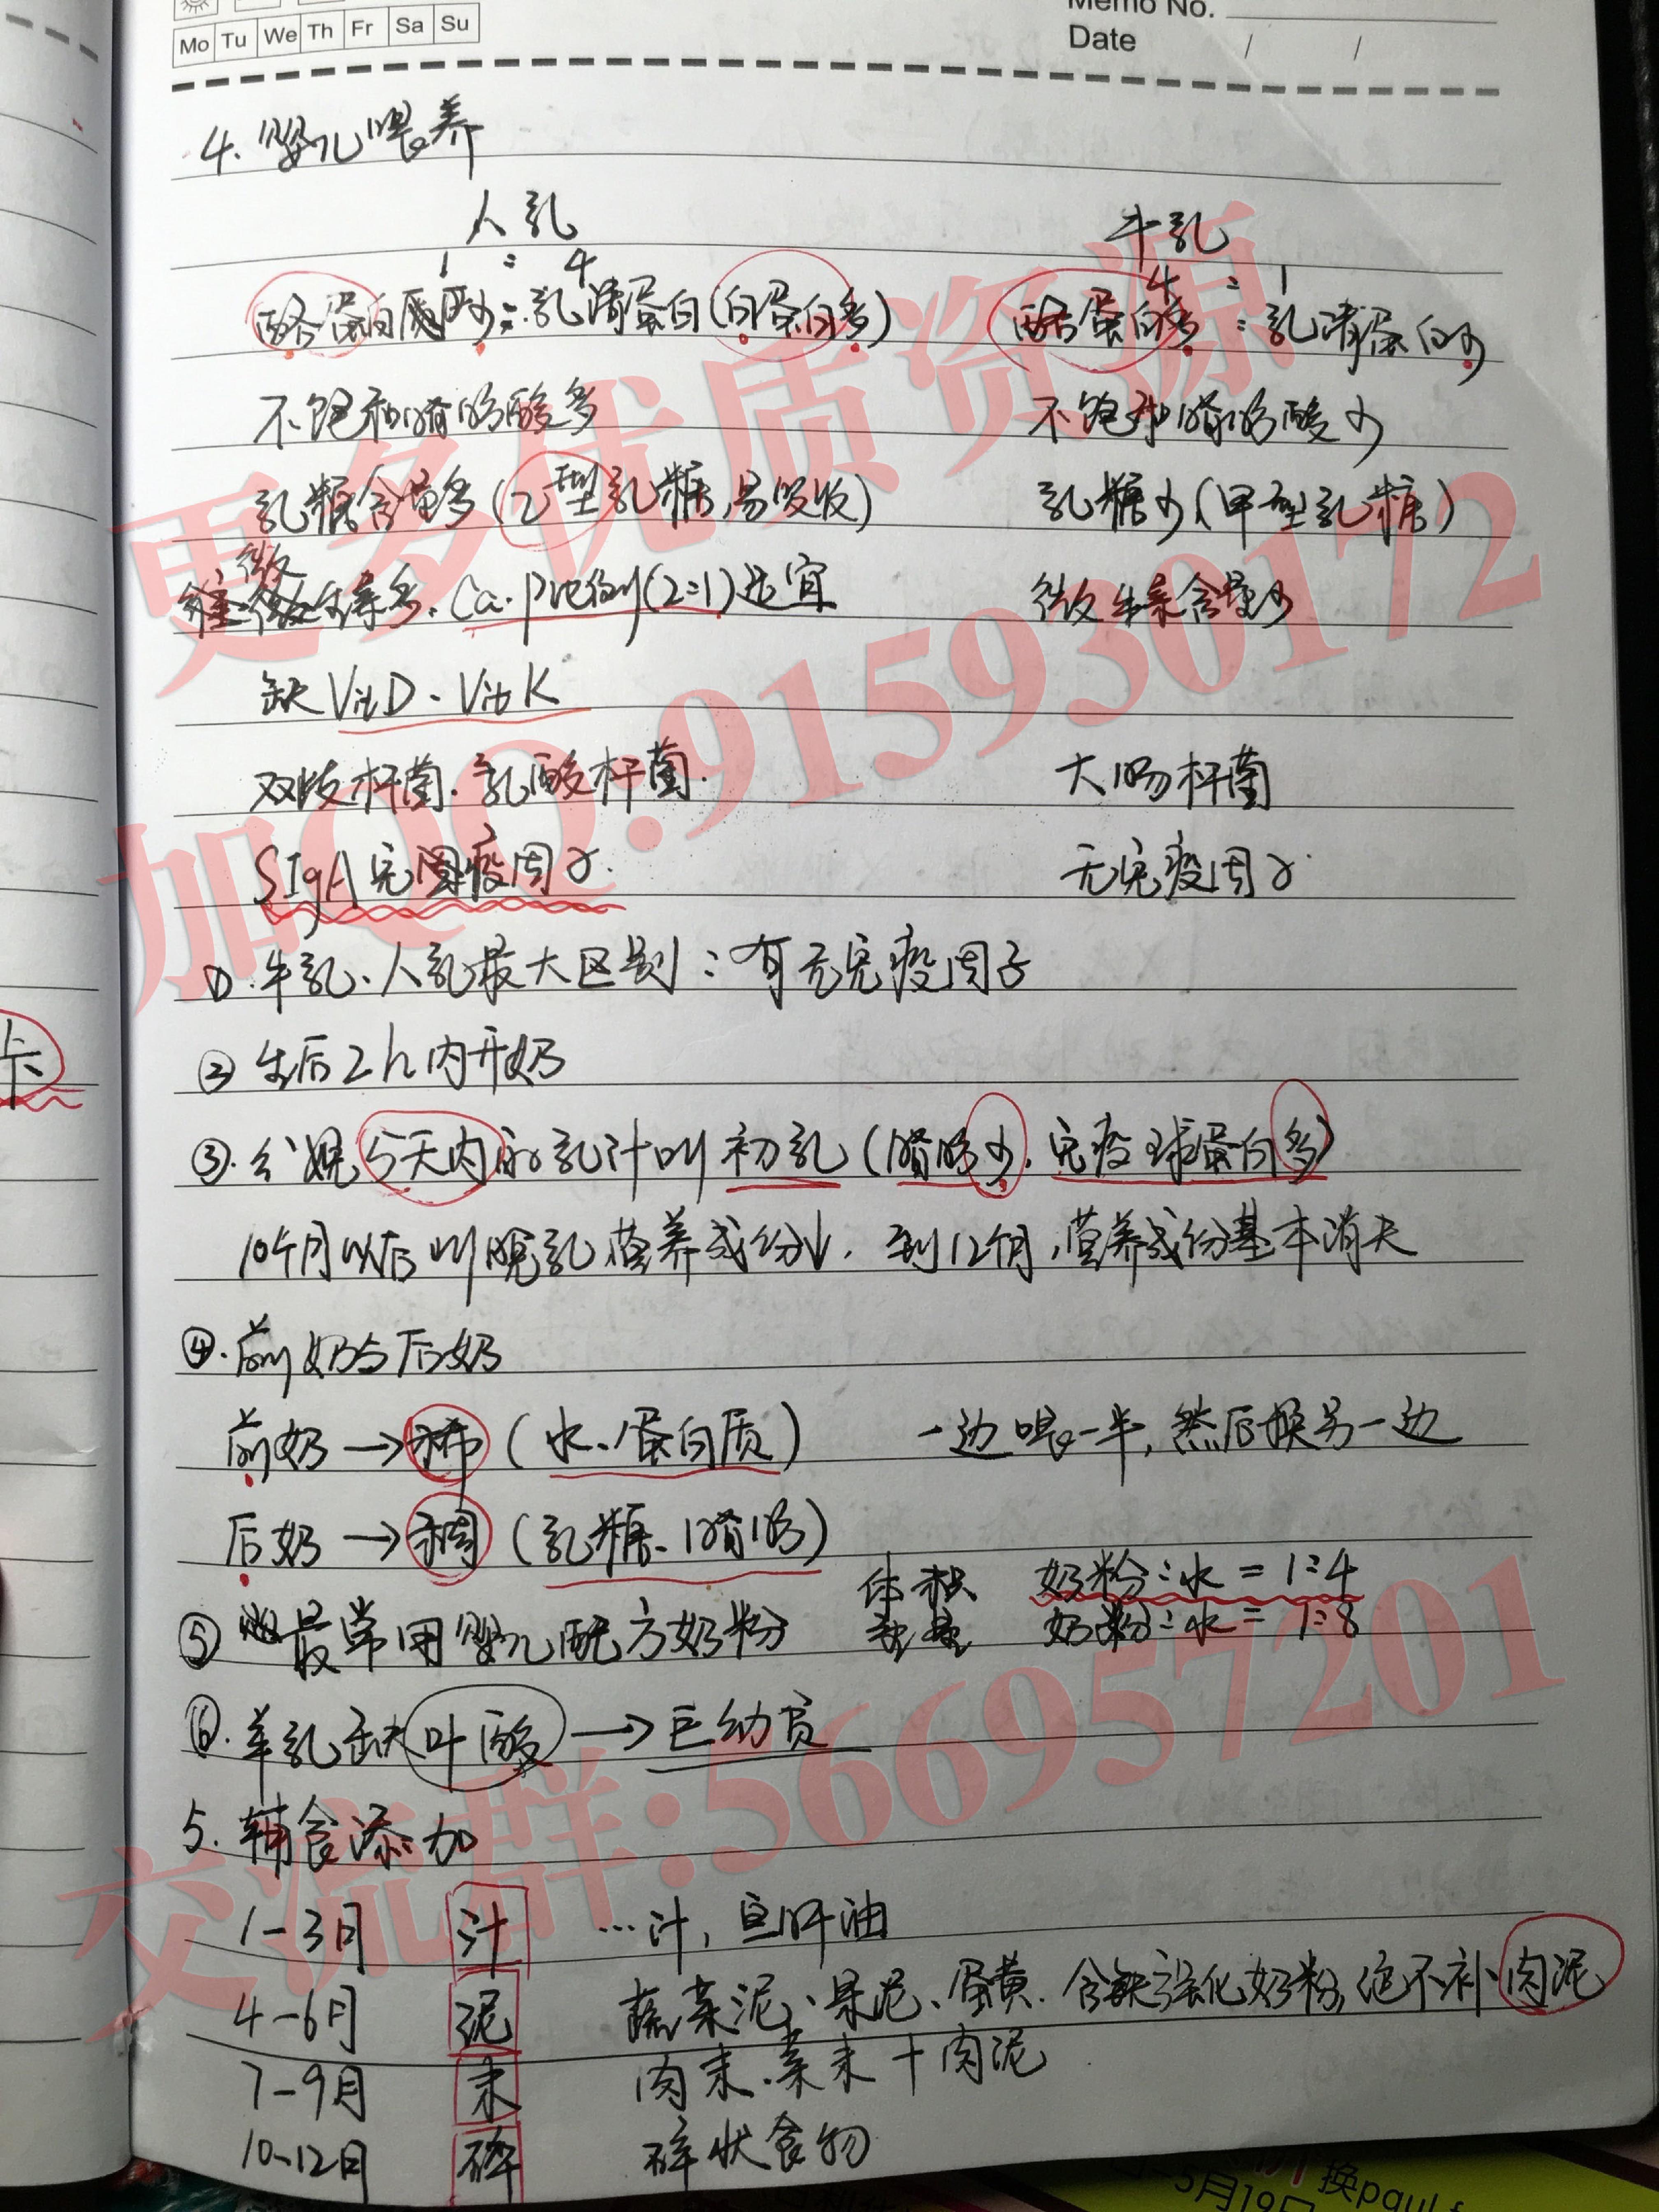 Mo Tu We Th Fr Sa Su
Memo No.
Date / /
4. 婴儿喂养
人乳 牛乳
1 : 4 4 : 1
酪蛋白 少 : 乳清蛋白(白蛋白多) 酪蛋白多 : 乳清蛋白少
不饱和脂肪酸多 不饱和脂肪酸少
乳糖含量多(乙型乳糖,易吸收) 乳糖少(甲型乳糖)
微
元素多、Ca.P比例(2:1)适宜 微生素含量少
缺VitD、VitK
双歧杆菌、乳酸杆菌. 大肠杆菌
SIgA 免疫因子. 无免疫因子
①. 牛乳、人乳最大区别:有无免疫因子
② 生后2h内开奶
③. 分娩5天内的乳汁叫初乳(脂肪少、免疫球蛋白多)
10个月以后叫晚乳营养成份↓. 到12个月,营养成份基本消失
④. 前奶与后奶
前奶→稀(水、蛋白质) 一边喂一半,然后换另一边
后奶→稠(乳糖、脂肪)
体积 奶粉:水=1:4
⑤ 最常用婴儿配方奶粉 重量 奶粉:水=1:8
⑥. 羊乳缺叶酸→巨幼贫
5. 辅食添加
1-3月 汁 …汁, 鱼肝油
4-6月 泥 蔬菜泥、果泥、蛋黄. 含铁强化奶粉,绝不补肉泥
7-9月 末 肉末.菜末+肉泥
10-12月 碎 碎状食物
卡
更多优质资源
加QQ:915930172
交流群:566957201
5月19日
换paul.f